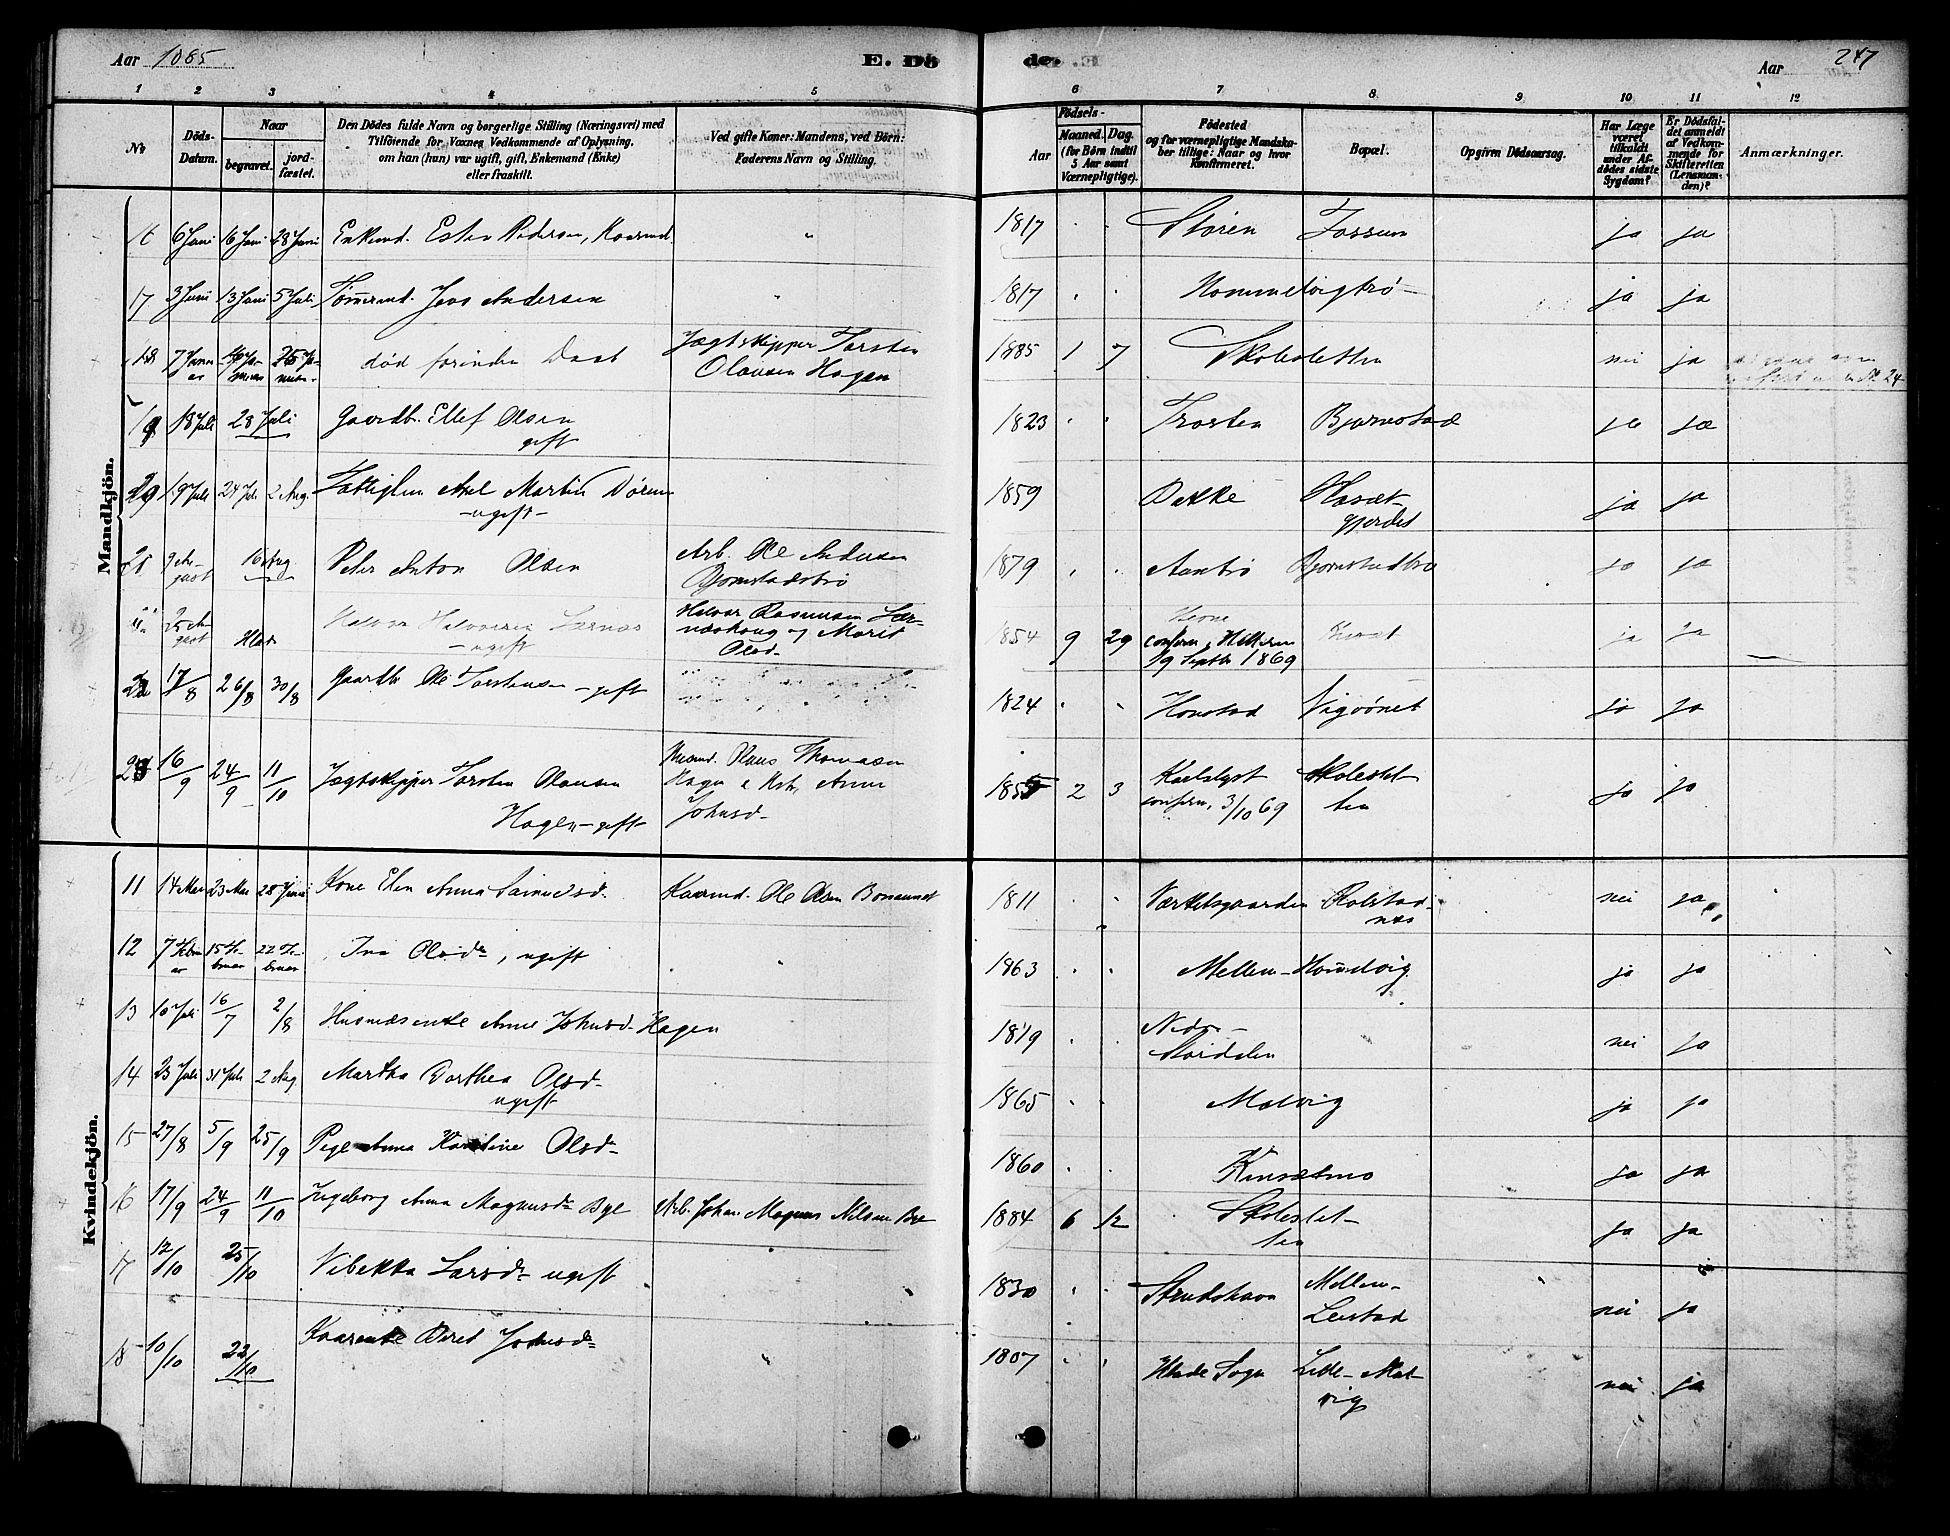 Aar 1885
E. Dö
de.
Aar
247
1 2 3 4 5 6 7 8 9 10 11 12
No
Döds-
Datum.
Naar
begravet.
jord-
fæstet.
Den Dödes fulde Navn og borgerlige Stilling (Næringsvei) med
Tilföiende for Voxnes Vedkommende af Oplysning,
om han (hun) var ugift, gift, Enkemand (Enke)
eller fraskilt.
Ved gifte Koner: Mandens, ved Börn:
Faderens Navn og Stilling.
Aar
Födsels-
Maaned. Dag.
(for Börn indtil
5 Aar samt
Værnepligtige).
Födested
og for værnepligtige Mandska-
ber tillige: Naar og hvor
Konfirmeret.
Bopæl.
Opgiven Dödsaarsag.
Har Læge
været
tilkaldt
under Af-
dödes sidste
Sygdom?
Er Dödsfal-
det anmeldt
af Vedkom-
mende for
Skifteretten
(Lensman-
den)?
Anmærkninger.
Mandkjön.
16 6 Juni 16 Juni 28 Juni Enkemd. Esten Pedersen, Kaarmd. 1817 Støren Fossum ja ja
17 3 Juni 13 Juni 5 Juli Tømmermd. Jens Andersen 1817 Hommelvigtrø ja ja
18 7 Januar død forinden Daab Jægtskipper Torsten
Olausen Hagen 1885 1 7 Skolesletten nei ja
19 18 Juli 28 Juli Gaardb. Ellef Olsen
gift 1823 Trøsten Bjørnstad ja ja
20 19 Juli 24 Juli 2 Aug. Fattiglem Axel Martin
-ugift- 1859 Bakke
gjerdet ja ja
21 9 August 16 Aug Peter Anton Olsen Arb. Ole Andersen
Bjørnstadtrø 1879 Bjørnstadtrø ja ja
25 August Halvor Halvorsen
-ugift Halvor Rasmussen
og Marit
Olsd. 1854 9 29
confirm. Hitteren
19 Septbr 1869 ja ja
22 17/8 26/8 30/8 Gaardb. Ole Torstensen - gift 1824 Honstad Vigrønet ja ja
23 16/9 24/9 11/10 Jægtskipper Torsten Olausen
Hagen - gift Husmd. Olaus Thomasen
Hagen & Anne
Johnsd. 1855 2 3 Karlslyst
confirm. 3/10 69 Skoleslet-
ten ja ja
Kvindekjön.
11 14 Mai 23 Mai 28 Juni Kone Elen Anna Samuelsd. Kaarmd. Ole Olsen 1811 Værketsgaarden Rolstad-
næs nei ja
12 7 Februar 15 Februar 22 Februar Ina Olsdr, ugift 1863 Mellem-Homelvig ja ja
13 10 Juli 16/7 2/8 Husmdsenke Anne Johnsd. Hagen 1819 Nedre-
Stordalen nei ja
14 23 Juli 31 Juli 2 Aug Martha Dorthea Olsd.
ugift 1865 Malvig ja ja
15 27/8 5/9 25/9 Pige Anna Karoline Olsdr 1860 ja ja
16 17/9 24/9 11/10 Ingeborg Anna Magnusdr Bye Arb. Johan Magnus Nilsen Bye 1884 6 12 Skoleslet-
ten ja ja
17 12/10 25/10 Vibekka Larsdr ugift 1830 Strindshavn Mellem-
Leistad nei ja
18 10/10 22/10 Kaarenke Beret Johnsdr 1807 Hlade Sogn Mal-
vig nei ja